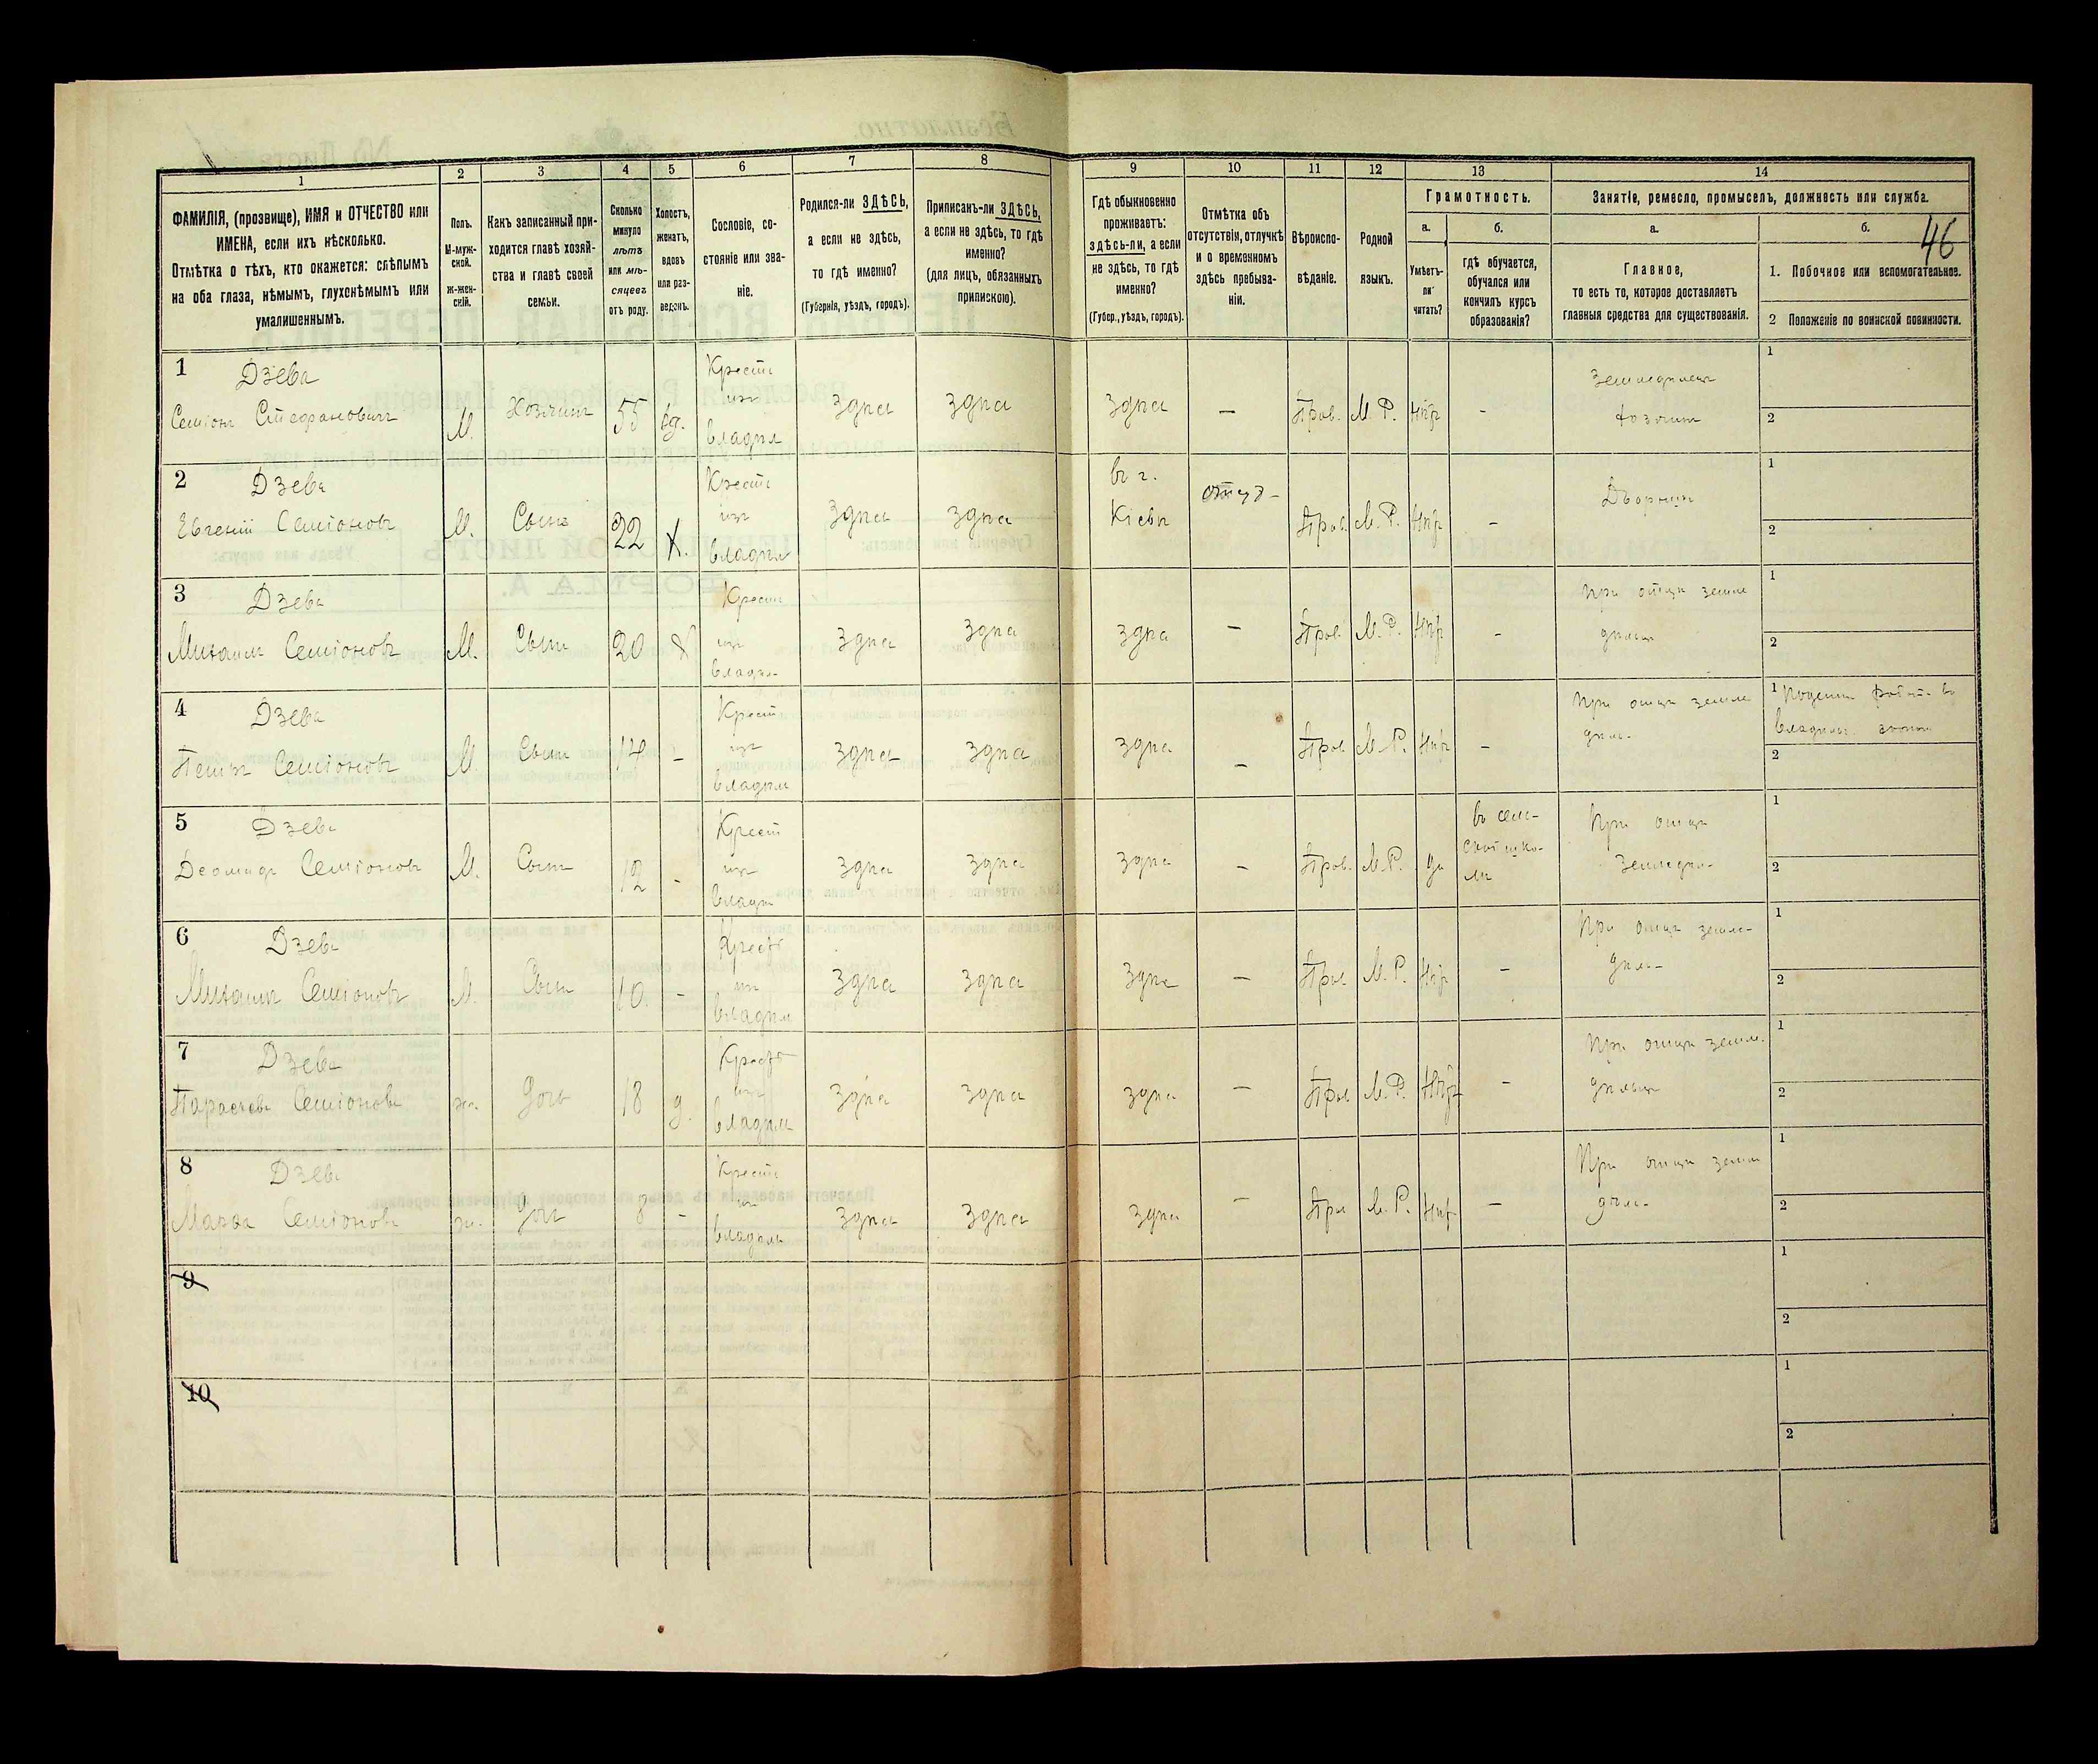 1 2 3 4 5 6 7 8 9 10 11 12 13 14
ФАМИЛІЯ, (прозвище), ИМЯ и ОТЧЕСТВО или
ИМЕНА, если ихъ нѣсколько.
Отмѣтка о тѣхъ, кто окажется: слѣпымъ
на оба глаза, нѣмымъ, глухонѣмымъ или
умалишеннымъ.
Полъ.
М-муж-
ской.
Ж-жен-
скій.
Какъ записанный при-
ходится главѣ хозяй-
ства и главѣ своей
семьи.
Сколько
минуло
лѣтъ
или мѣ-
сяцевъ
отъ роду.
Холостъ,
женатъ,
вдовъ
или раз-
веденъ.
Сословіе, со-
стояніе или зва-
ніе.
Родился-ли ЗДѢСЬ,
а если не здѣсь,
то гдѣ именно?
(Губернія, уѣздъ, городъ).
Приписанъ-ли ЗДѢСЬ,
а если не здѣсь, то гдѣ
именно?
(для лицъ, обязанныхъ
припискою).
Гдѣ обыкновенно
проживаетъ:
здѣсь-ли, а если
не здѣсь, то гдѣ
именно?
(Губер., уѣздъ, городъ).
Отмѣтка объ
отсутствіи, отлучкѣ
и о временномъ
здѣсь пребыва-
ніи.
Вѣроиспо-
вѣданіе.
Родной
языкъ.
Грамотность.
а.
Умѣетъ-
ли
читать?
б.
гдѣ обучается,
обучался или
кончилъ курсъ
образованія?
Занятіе, ремесло, промыселъ, должность или служба.
а.
Главное,
то есть то, которое доставляетъ
главныя средства для существованія.
б.
46
1. Побочное или вспомогательное.
2 Положеніе по воинской повинности.
1 Дзева
Семіонъ Стефановичъ
М. Хозяинъ 55 вд.
Крестя
изъ
владѣл
здѣсь здѣсь здѣсь — Прав. М. Р. нѣт -
Земледѣлецъ
хозяинъ
1
2
2 Дзева
Евгеній Семіоновъ
М. Сынъ 22 Х.
Крестя
изъ
владѣл
здѣсь здѣсь
въ г.
Кіевѣ
отсут-
Прав. М. Р. нѣт -
Дворникъ
1
2
3 Дзева
Михаилъ Семіоновъ
М. Сынъ 20 Х
Крестя
изъ
владѣл-
здѣсь здѣсь здѣсь — Прав. М. Р. нѣт -
При отцѣ земле
дѣлецъ
1
2
4 Дзева
Петръ Семіоновъ
М. Сынъ 14 -
Крест
изъ
владѣл
здѣсь здѣсь здѣсь — Прав. М. Р. нѣт -
При отцѣ земле
дѣл-
1
2
5 Дзева
Деомидъ Семіоновъ
М. Сынъ 12 -
Крест
изъ
владѣл
здѣсь здѣсь здѣсь — Прав. М. Р. да
въ сель-
ской шко-
лѣ
При отцѣ
земледѣл-
1
2
6 Дзева
Михаилъ Семіоновъ
М. Сынъ 10. -
Крест
изъ
владѣл
здѣсь здѣсь здѣсь — Прав М. Р. нѣт -
При отцѣ земле-
дѣл-
1
2
7 Дзева
Параскева Семіонова
ж. Дочь 18 д.
Крест
изъ
владѣл
здѣсь здѣсь здѣсь — Прав М. Р. нѣт -
При отцѣ земле.
дѣлецъ
1
2
8 Дзева
Семіонова
ж. Дочь 8 -
Крестя
изъ
владѣл
здѣсь здѣсь здѣсь — Прав М. Р. нѣт —
При отцѣ земле
дѣл-
1
2
9
1
2
10
1
2